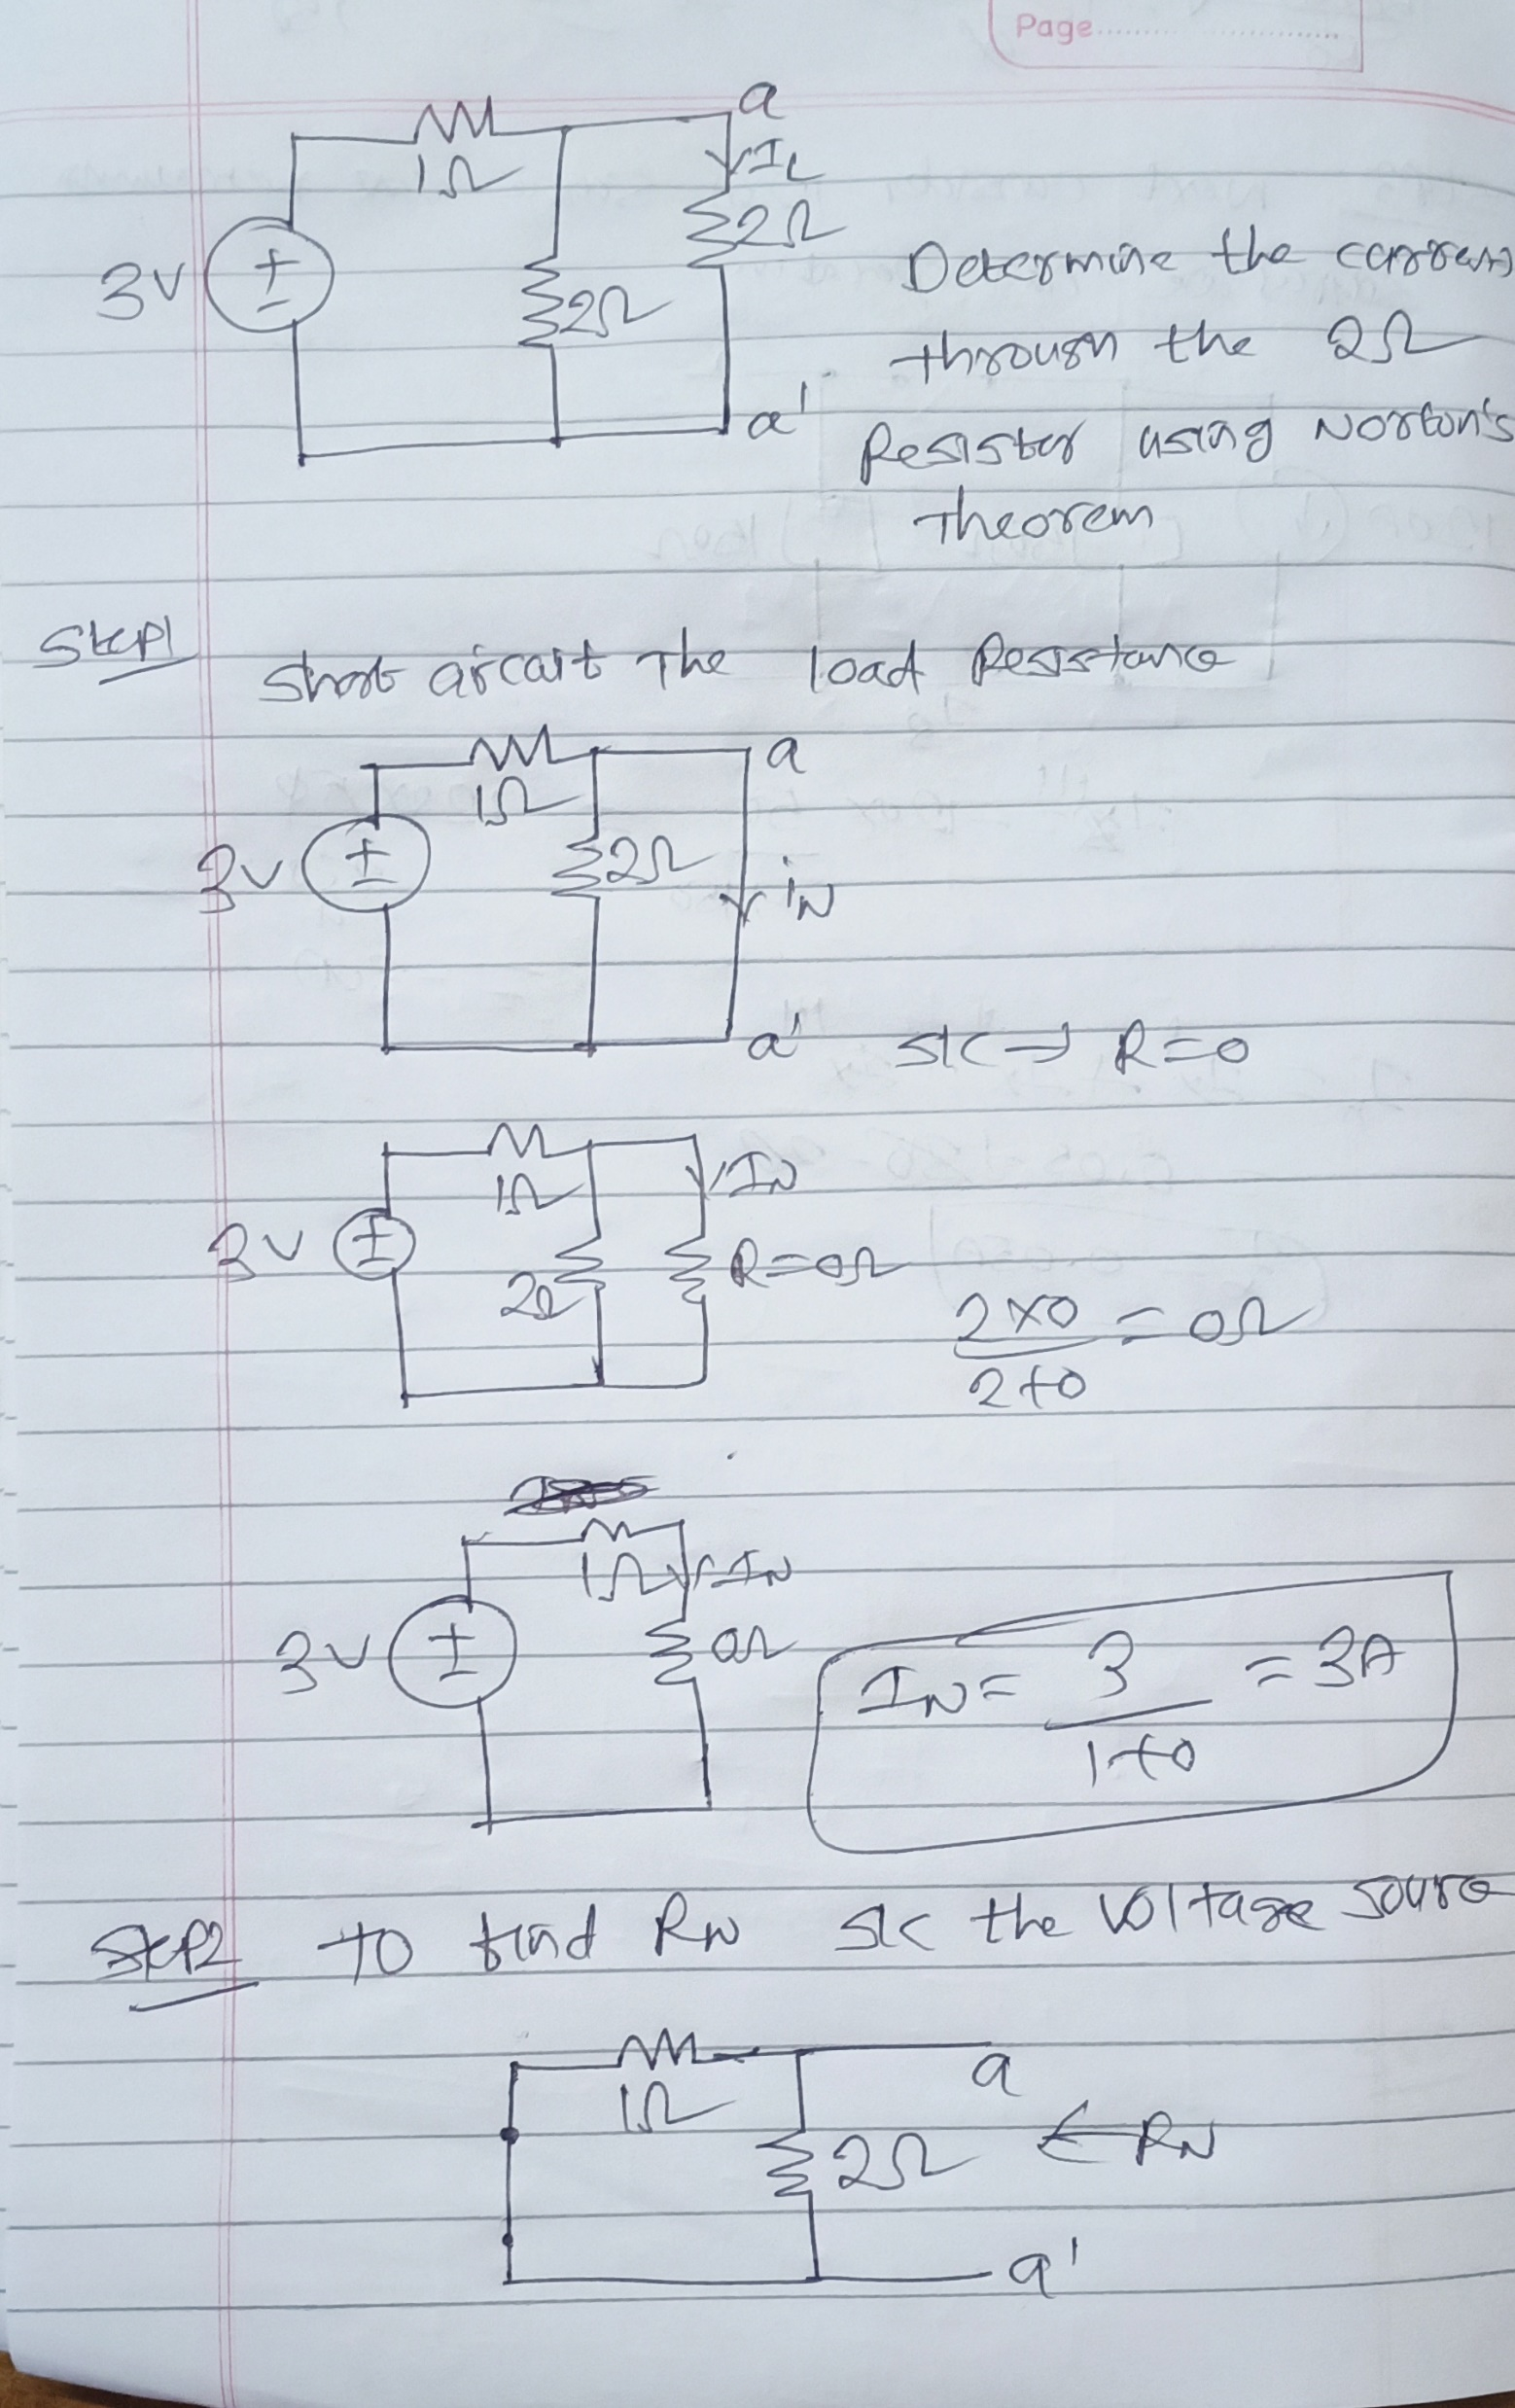 Page
a
1Ω
IL
2Ω
3V
+
-
2Ω
a'
Determine the current
through the 2Ω
Resistor using Norton's
Theorem
Step1
Short circuit The load Resistance
a
1Ω
3V
±
2Ω
iN
a'
S/C → R=0
1Ω
IN
3V
±
2Ω
R=0Ω
2×0/2+0 = 0Ω
1Ω
IN
3V
±
0Ω
IN = 3/1+0 = 3A
Step2 To find RN S/C the Voltage Source
1Ω
a
2Ω
← RN
a'